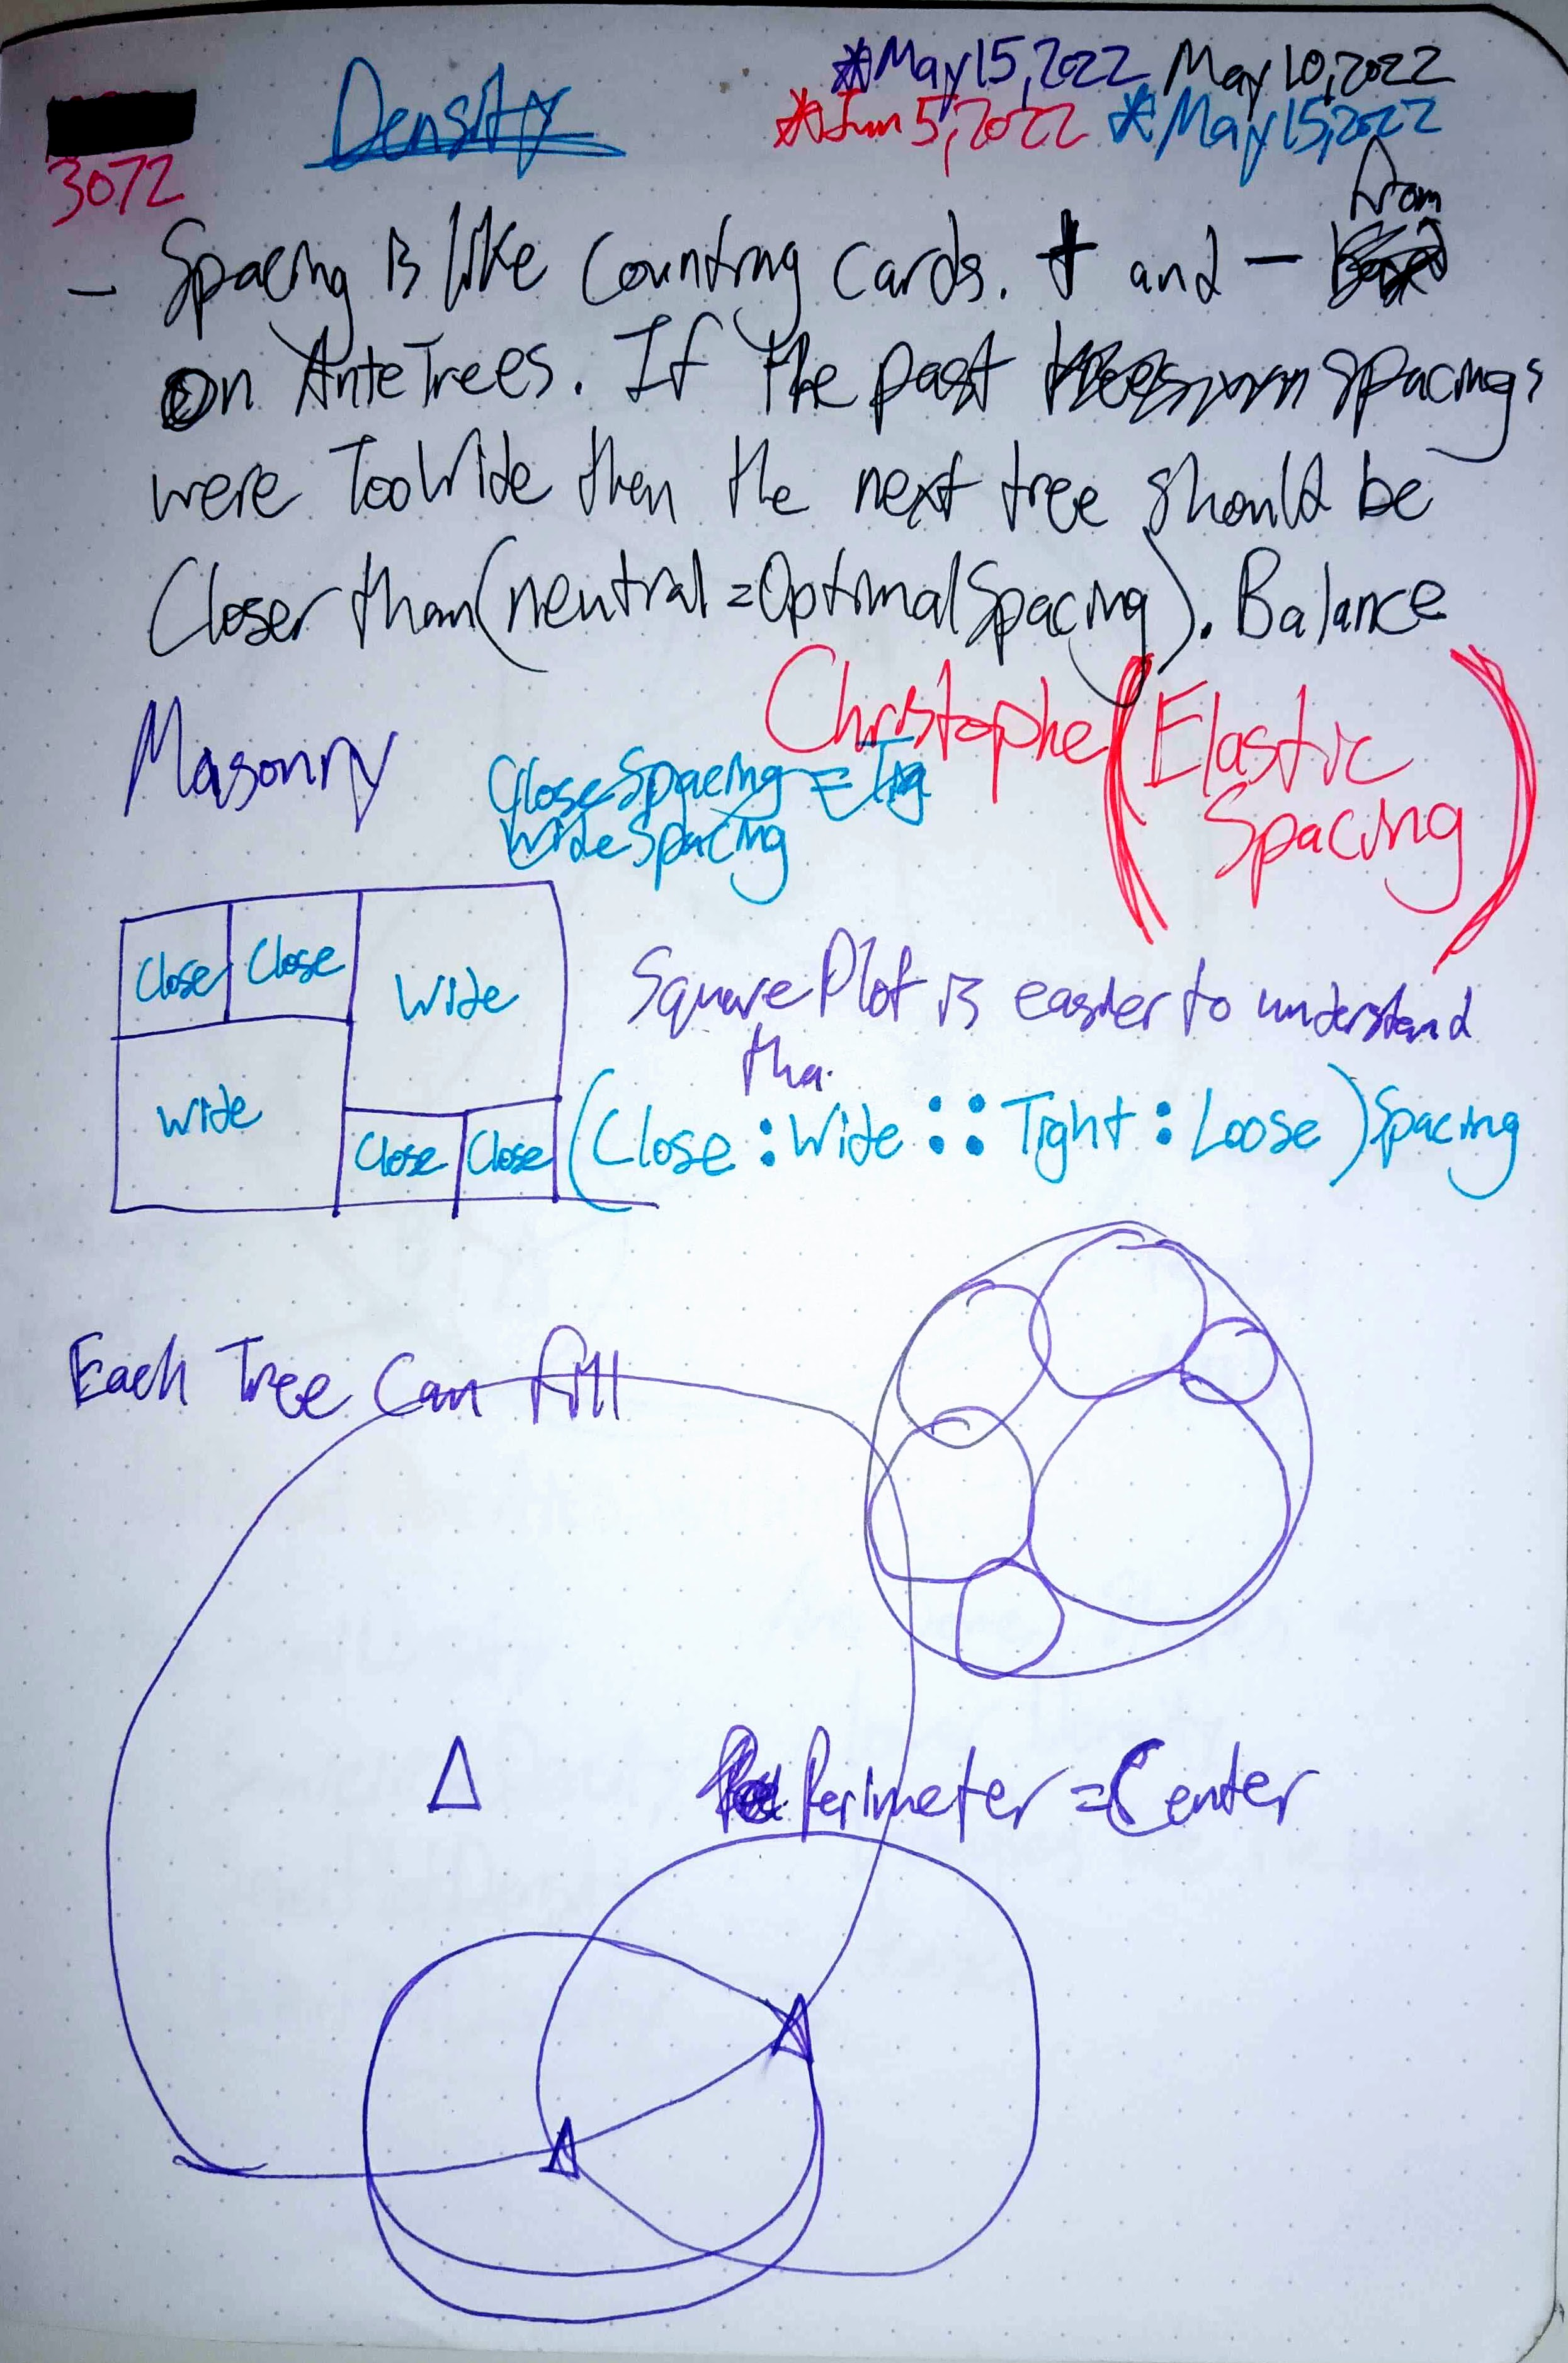 Density
*May 15, 2022 May 10, 2022
*Jun 5, 2022 *May 15, 2022
3072
from
- Spacing is like Counting Cards. + and -
on AnteTrees. If the past spacings
were TooWide then the next tree should be
Closer than (neutral = OptimalSpacing). Balance
Masonry
Christophe (Elastic
Spacing)
CloseSpacing = Tig
WideSpacing
Close Close Wide
Wide Close Close
SquarePlot is easier to understand
tha
(Close : Wide :: Tight : Loose) Spacing
Each Tree Can fill
Δ Perimeter = Center
Δ
Δ